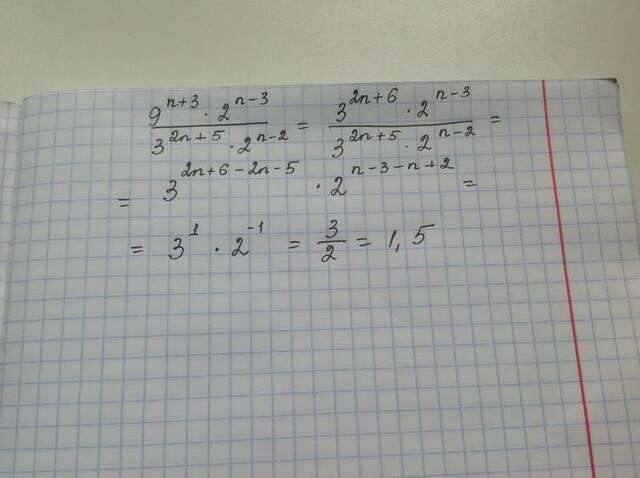 9^{n+3} · 2^{n-3} / 3^{2n+5} · 2^{n-2} = 3^{2n+6} · 2^{n-3} / 3^{2n+5} · 2^{n-2} =
= 3^{2n+6-2n-5} · 2^{n-3-n+2} =
= 3^1 · 2^{-1} = 3/2 = 1,5